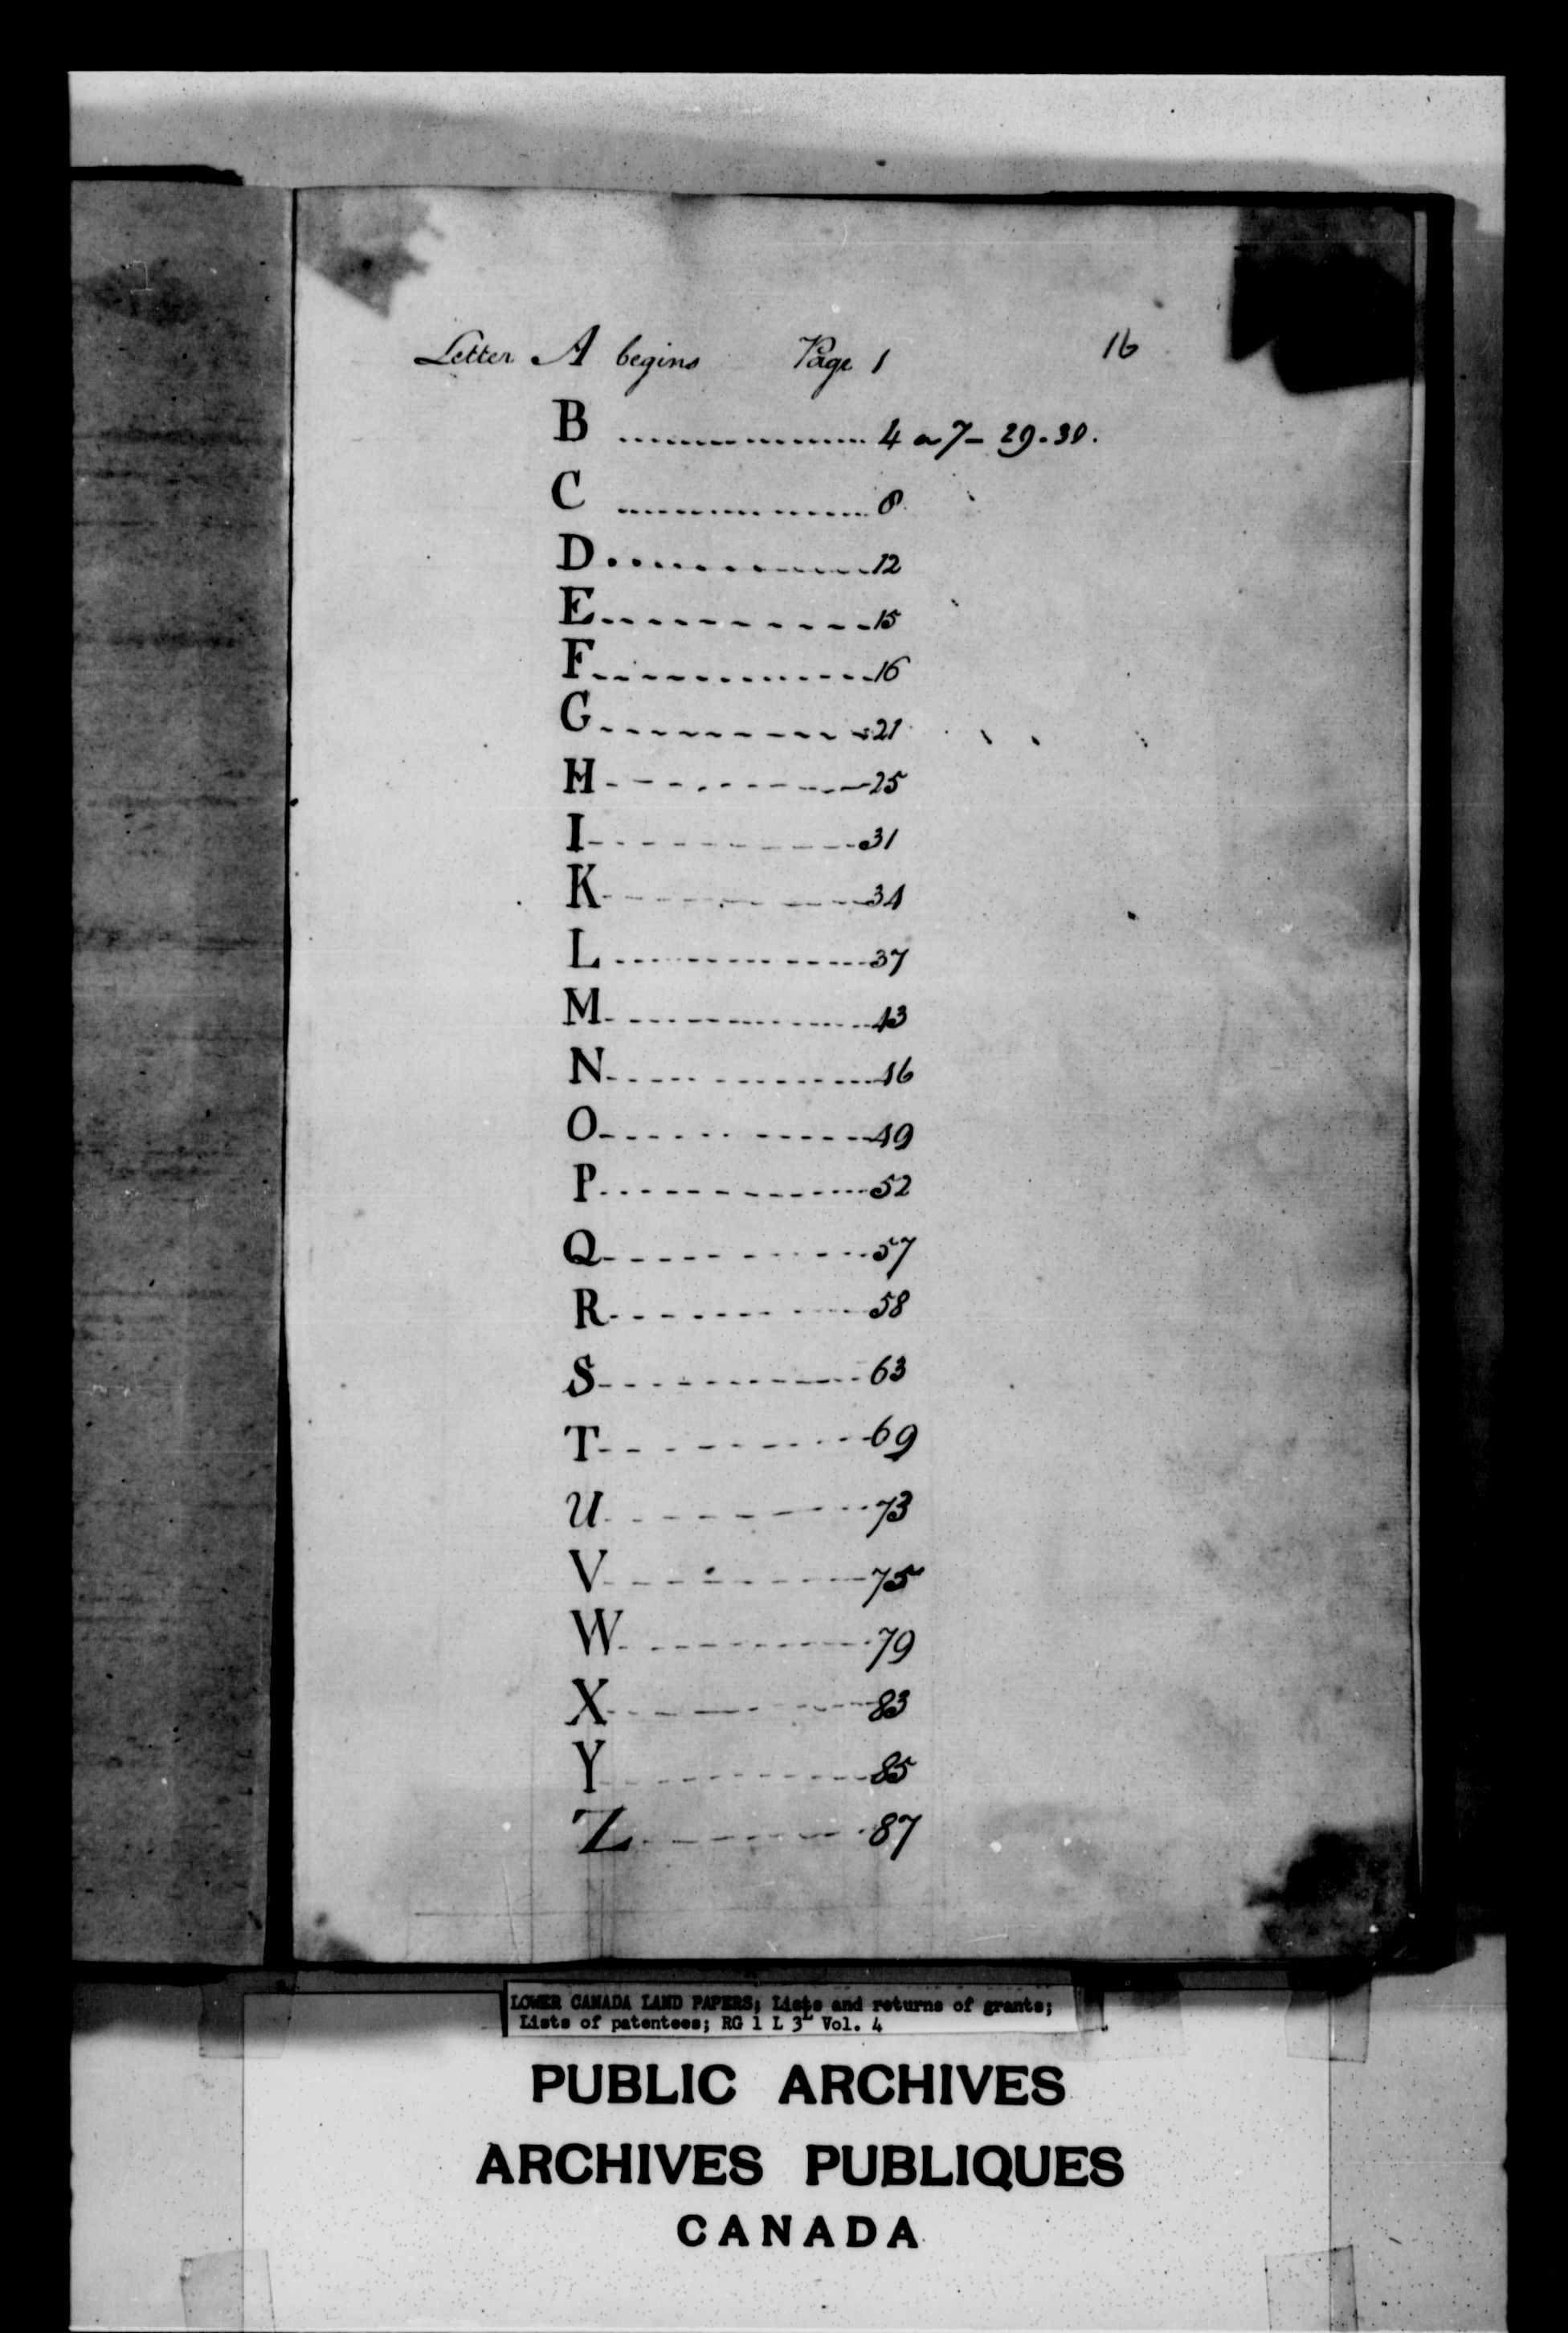 Letter A begins Page 1 16
B .................. 4 a 7 - 29.30.
C .................. 8
D .................. 12
E .................. 15
F .................. 16
G .................. 21
H .................. 25
I .................. 31
K .................. 34
L .................. 37
M .................. 43
N .................. 46
O .................. 49
P .................. 52
Q .................. 57
R .................. 58
S .................. 63
T .................. 69
U .................. 73
V .................. 75
W .................. 79
X .................. 83
Y .................. 85
Z .................. 87
LOWER CANADA LAND PAPERS; Lists and returns of grants;
Lists of patentees; RG 1 L 3L Vol. 4
PUBLIC ARCHIVES
ARCHIVES PUBLIQUES
CANADA